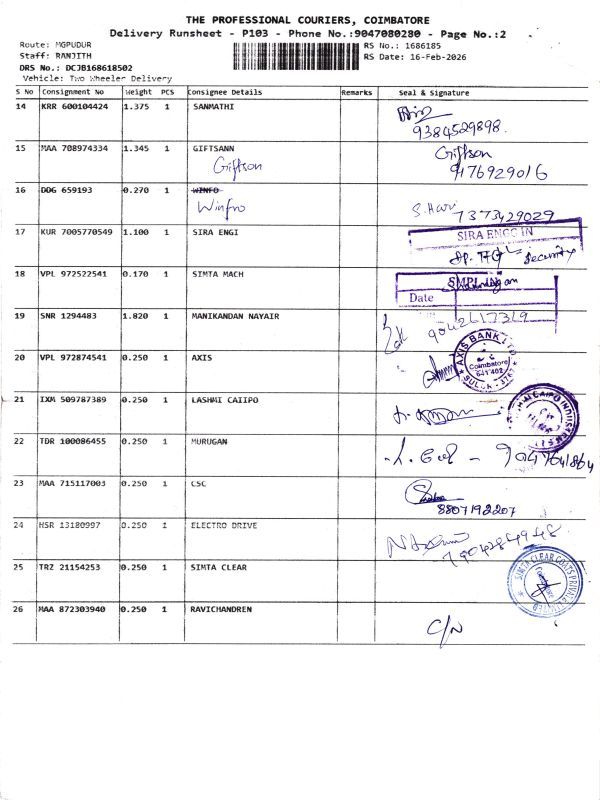 THE PROFESSIONAL COURIERS, COIMBATORE
Delivery Runsheet - P103 - Phone No.:9047080280 - Page No.:2
Route: MGPUDUR
RS No.: 1686185
Staff: RANJITH
RS Date: 16-Feb-2026
DRS No.: DCJB168618502
Vehicle: Two Wheeler Delivery
S No Consignment No Weight PCS Consignee Details Remarks Seal & Signature
14 KRR 600104424 1.375 1 SANMATHI
9384529898.
15 MAA 708974334 1.345 1 GIFTSANN Giftson
Giftson 9176929016
16 DOG 659193 0.270 1 WINFO
Winfro S. Hari 7373429029
17 KUR 7005770549 1.100 1 SIRA ENGI SIRA ENGG IN
Security
18 VPL 972522541 0.170 1 SIMTA MACH
Date
19 SNR 1294483 1.820 1 MANIKANDAN NAYAIR
9042617369
20 VPL 972874541 0.250 1 AXIS AXIS BANK LTD
Coimbatore
641 402
SULUR
21 IXM 509787389 0.250 1 LASHMI CAIIPO
22 TDR 100086455 0.250 1 MURUGAN
9047641864
23 MAA 715117003 0.250 1 CSC
8807192207
24 HSR 13180997 0.250 1 ELECTRO DRIVE
7904284948
25 TRZ 21154253 0.250 1 SIMTA CLEAR SIMTA CLEAR COATS PRIVATE LIMITED
26 MAA 872303940 0.250 1 RAVICHANDREN
C/N